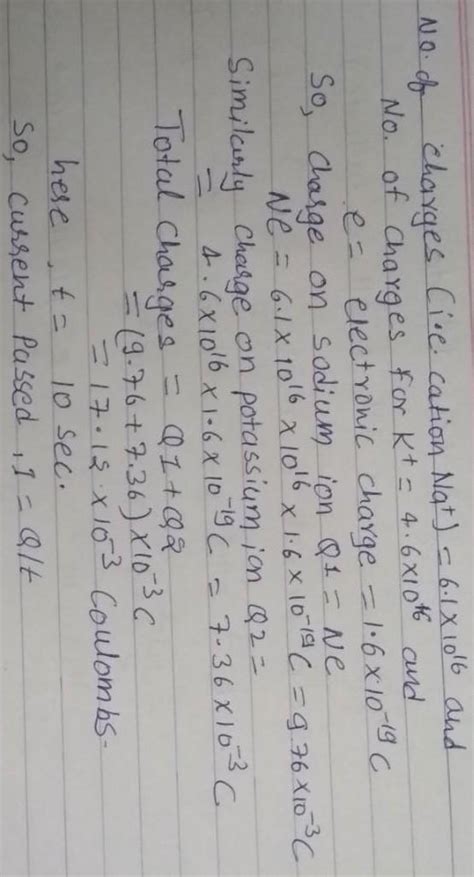 No. of charges (i.e. cation Na+) = 6.1x10^16 and
No. of charges for K+ = 4.6x10^16 and
e = electronic charge = 1.6x10^-19 C
So, charge on sodium ion Q1 = Ne
Ne = 6.1x10^16 x10^16 x1.6x10^-19 C = 9.76x10^-3 C
Similarly charge on potassium ion Q2 =
= 4.6x10^16 x1.6x10^-19 C = 7.36x10^-3 C
Total charges = Q1+Q2
= (9.76+7.36)x10^-3 C
= 17.12 x10^-3 Coulombs.
here, t = 10 sec.
So, current passed, I = Q/t